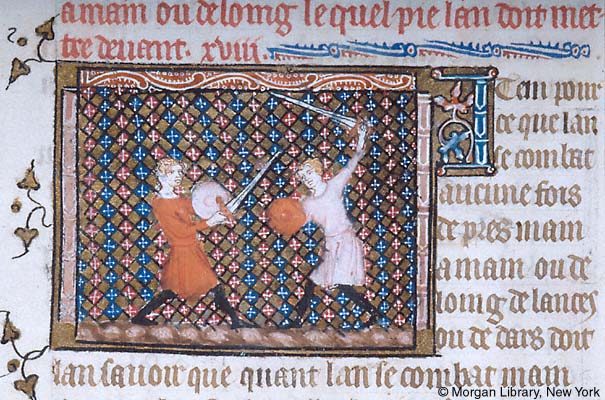 amain ou de loing le quel pie lan doit met
tre devant. xviii.
Item pour
ce que lan
se combat
aucune fois
de pres main
a main ou de
loing de lances
ou de dars doit
lan savoir que quant lan se combat main
© Morgan Library, New York